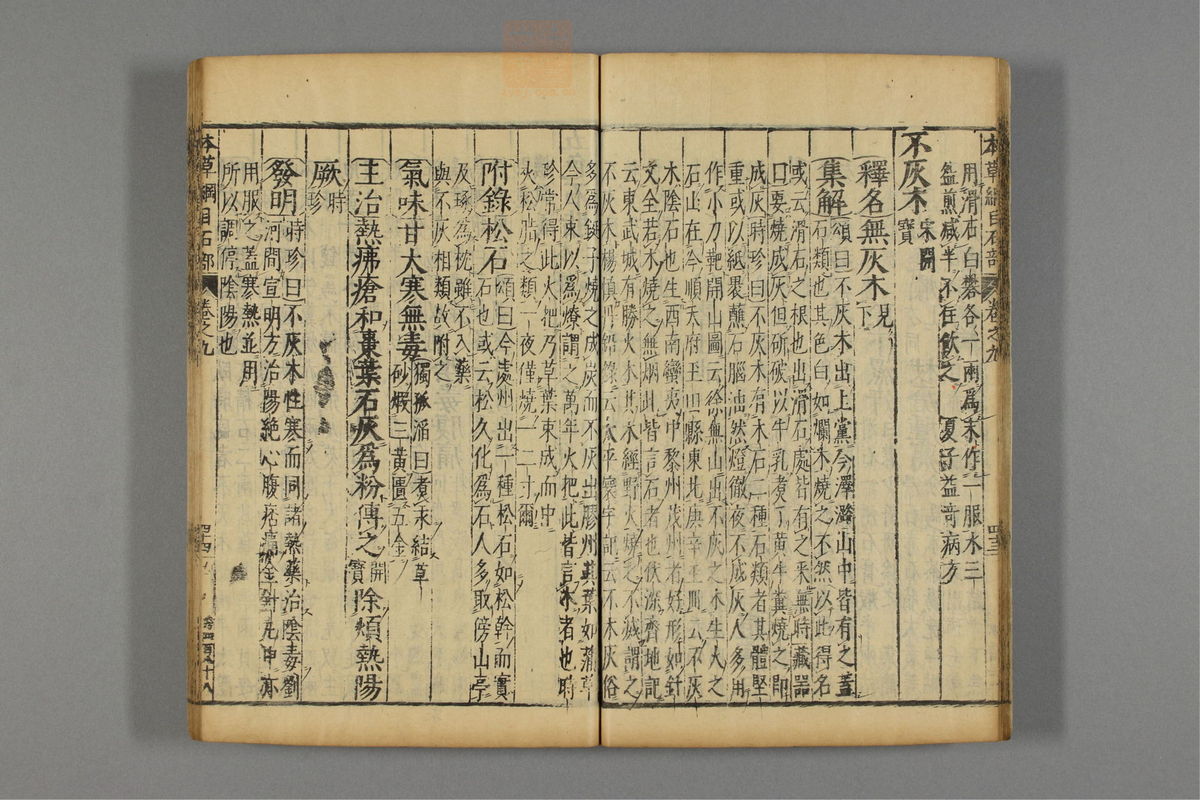 本草綱目石部 卷之九 四十三
用滑石白礬各一兩爲末作一服水三
盌煎減半不住飲之 夏子益奇病方
不灰木 宋開寶
釋名無灰木 見下
集解 頌曰不灰木出上黨今澤潞山中皆有之蓋
石類也其色白如爛木燒之不然以此得名
或云滑石之根也出滑石處皆有之采無時藏器
曰要燒成灰但斫破以牛乳煮了黃牛糞燒之即
成灰時珍曰不灰木有木石二種石類者其體堅
重或以紙裹蘸石腦油然燈徹夜不成灰人多用
作小刀靶開山圖云徐無山出不灰之木生火之
石山在今順天府玉田縣東北庚辛玉冊云不灰
木陰石也生西南蠻夷中黎州茂州者好形如針
文全若木燒之無烟此皆言石者也伏深齊地記
云東武城有勝火木其木經野火燒之不滅謂之
不灰木楊慎丹鉛錄云太平寰宇記云不木灰俗
多爲鋌子燒之成炭而不灰出膠州其葉如蒲草
今人束以爲燎謂之萬年火把此皆言木者也時
珍常得此火把乃草葉束成而中
夾松脂之類一夜僅燒一二寸爾
附錄松石 頌曰今處州出一種松石如松幹而實
石也或云松久化爲石人多取傍山亭
及琢爲枕雖不入藥
與不灰相類故附之
氣味甘大寒無毒 獨孤滔曰煮汞結草
砂煅三黃匱五金
主治熱疿瘡和棗葉石灰爲粉傅之 開寶 除煩熱陽
厥 時珍
發明 時珍曰不灰木性寒而同諸熱藥治陰毒劉
河間宣明方治陽絕心腹痞痛金針丸中亦
用服之蓋寒熱並用
所以調停陰陽也
本草綱目石部 卷之九 四十四